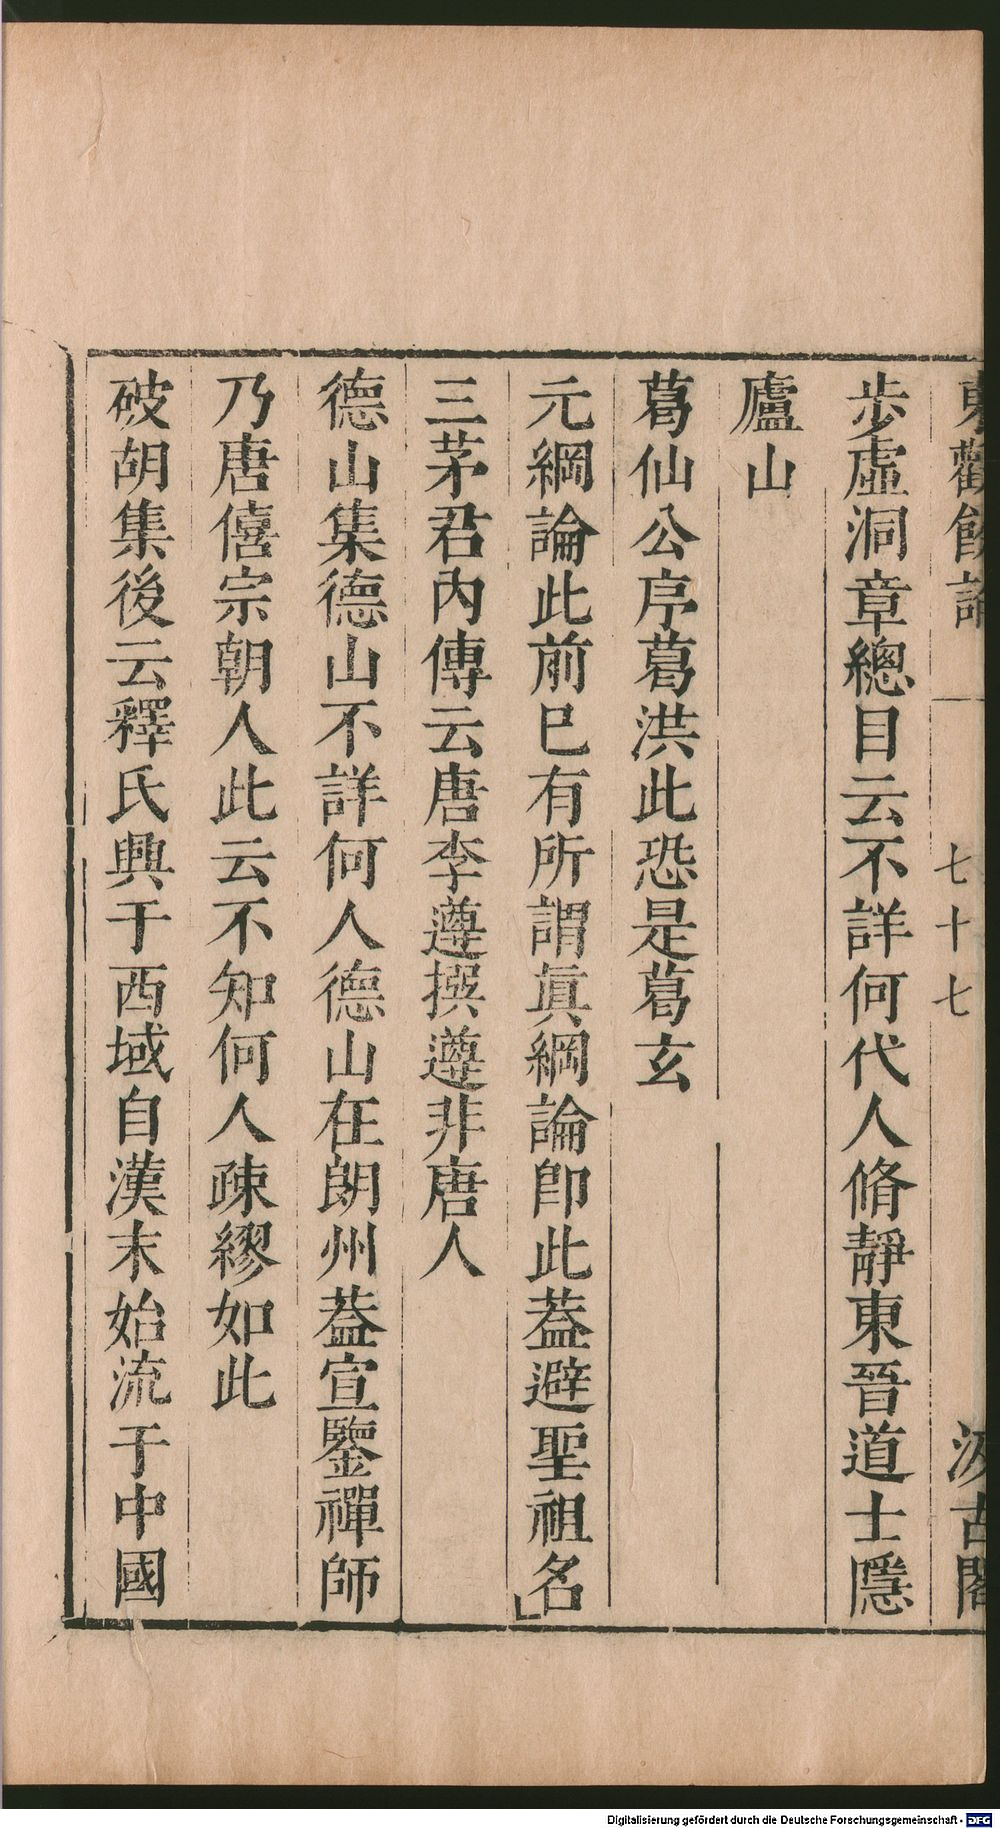 東觀餘論
七十七
汲古閣
步虛洞章總目云不詳何代人脩靜東晉道士隱
廬山
葛仙公序葛洪此恐是葛玄
元綱論此前已有所謂眞綱論卽此葢避聖祖名
三茅君內傳云唐李遵撰遵非唐人
德山集德山不詳何人德山在朗州葢宣鑒禪師
乃唐僖宗朝人此云不知何人疎繆如此
破胡集後云釋氏興于西域自漢末始流于中國
Digitalisierung gefördert durch die Deutsche Forschungsgemeinschaft - DFG